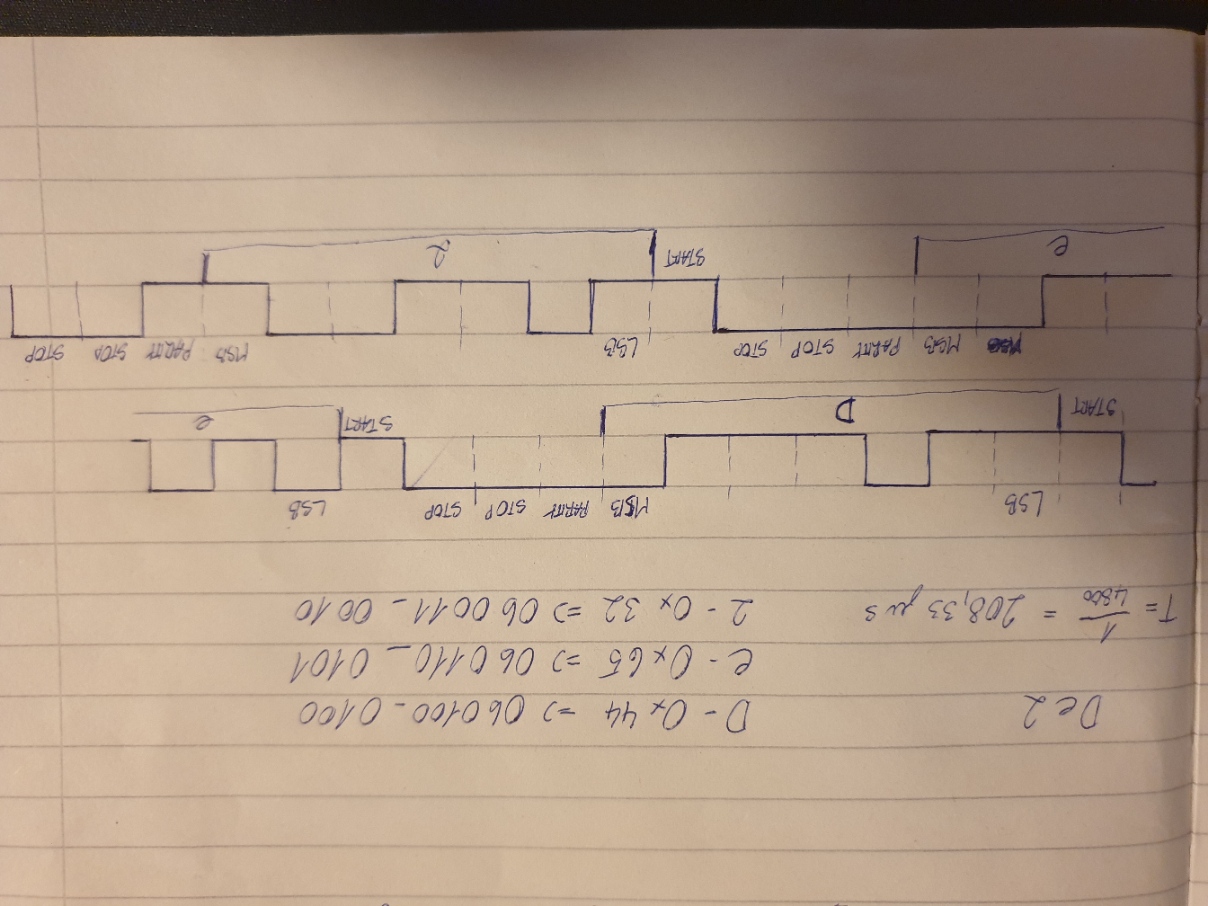 De2 D - 0x44 => 0b0100_0100
e - 0x65 => 0b0110_0101
T = 1/4800 = 208,33 μs 2 - 0x32 => 0b0011_0010
LSB MSB PARITY STOP STOP LSB
START D START e
MSB PARITY STOP STOP LSB MSB PARITY STOP STOP
e START 2